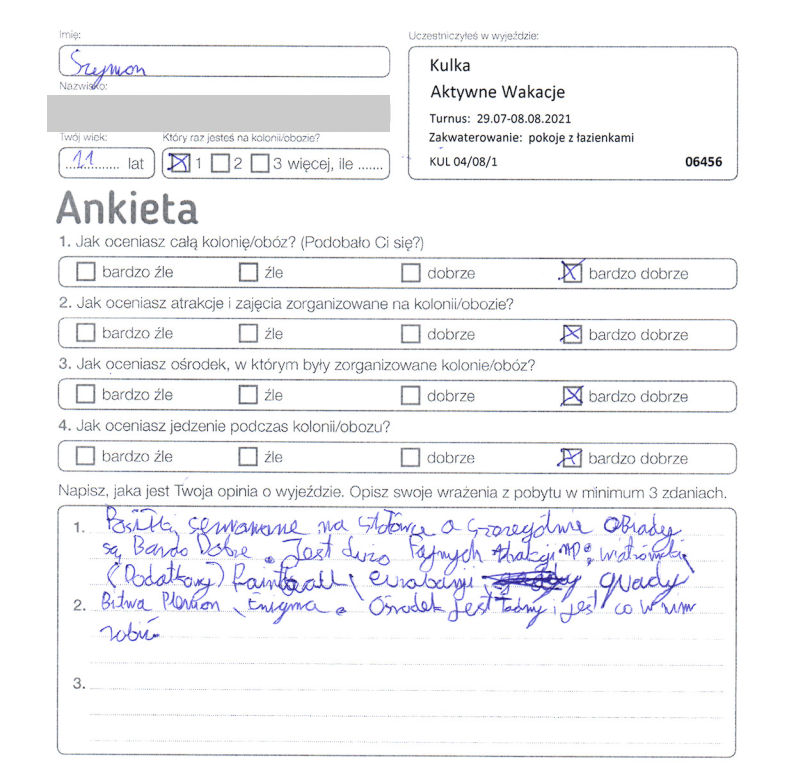 Imię:
Szymon
Nazwisko:
Twój wiek:
11 lat
Który raz jesteś na kolonii/obozie?
1 2 3 więcej, ile .......
Uczestniczyłeś w wyjeździe:
Kulka
Aktywne Wakacje
Turnus: 29.07-08.08.2021
Zakwaterowanie: pokoje z łazienkami
KUL 04/08/1 06456
Ankieta
1. Jak oceniasz całą kolonię/obóz? (Podobało Ci się?)
bardzo źle źle dobrze bardzo dobrze
2. Jak oceniasz atrakcje i zajęcia zorganizowane na kolonii/obozie?
bardzo źle źle dobrze bardzo dobrze
3. Jak oceniasz ośrodek, w którym były zorganizowane kolonie/obóz?
bardzo źle źle dobrze bardzo dobrze
4. Jak oceniasz jedzenie podczas kolonii/obozu?
bardzo źle źle dobrze bardzo dobrze
Napisz, jaka jest Twoja opinia o wyjeździe. Opisz swoje wrażenia z pobytu w minimum 3 zdaniach.
1. Posiłki serwowane na stołówce a szczególnie obiady
są Bardo Dobre. Jest dużo Fajnych Atrakcji np:
(Dodatkowy) Paintball, eurobungi, quady
2. Bitwa Plemion, Enigma. Ośrodek jest ładny i jest co w nim
robić.
3.